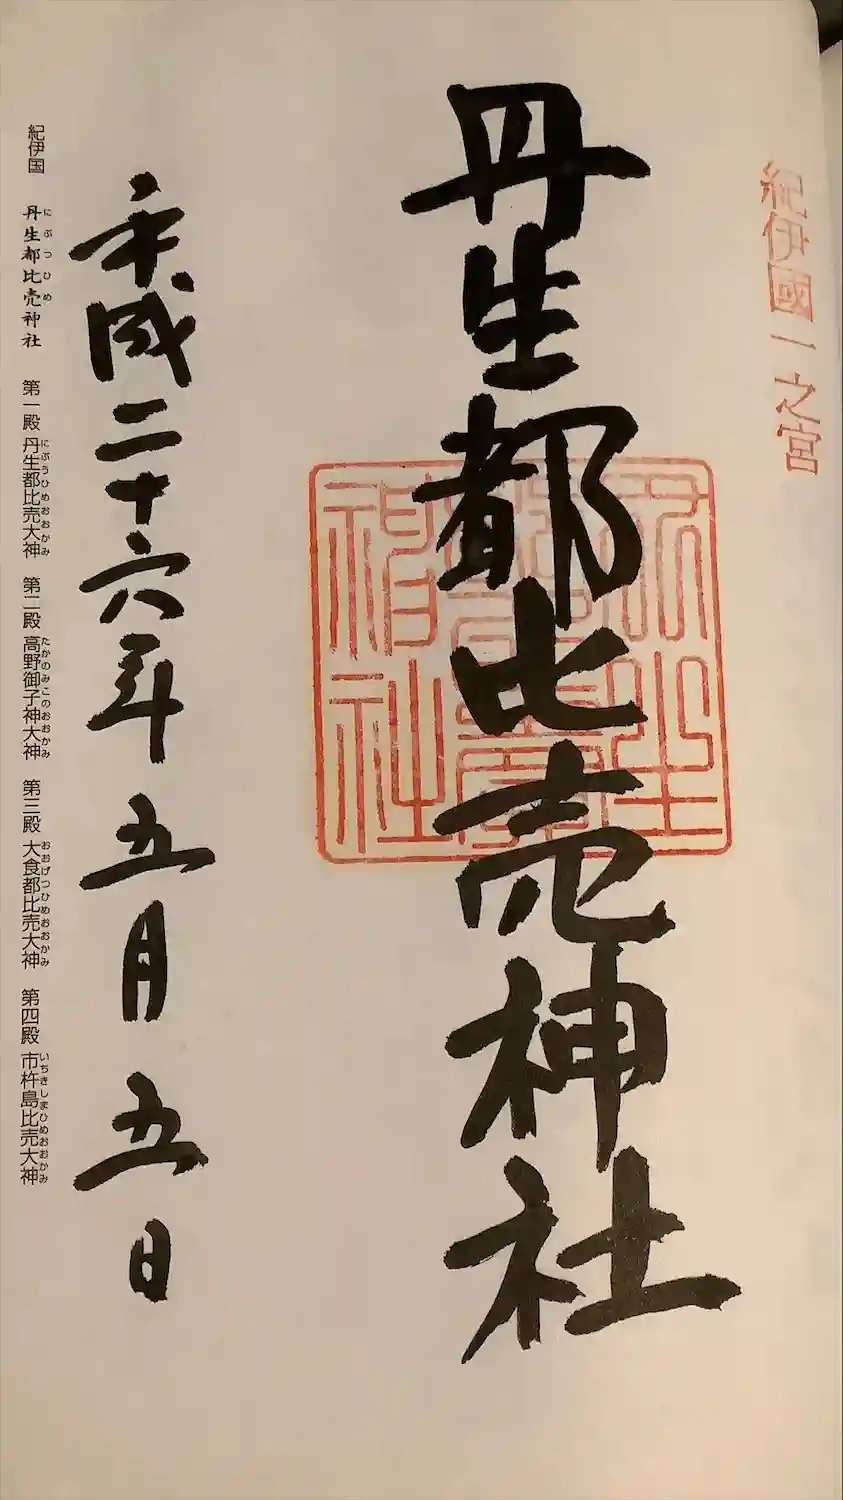 紀伊國一之宮
丹生都比売神社
丹生都比売神社
平成二十六年五月五日
紀伊国 丹生都比売神社 第一殿 丹生都比売大神 第二殿 高野御子神大神 第三殿 大食都比売大神 第四殿 市杵島比売大神
にぶつひめ にぶうひめおおかみ たかのみこのおおかみ おおげつひめおおかみ いちきしまひめおおかみ